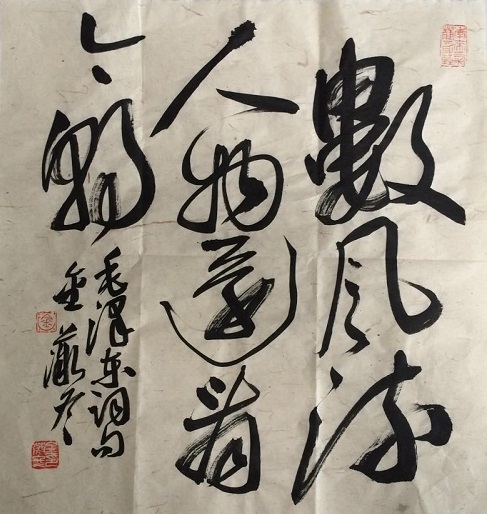 數風流
人物還看
今朝
毛澤東詞句
金